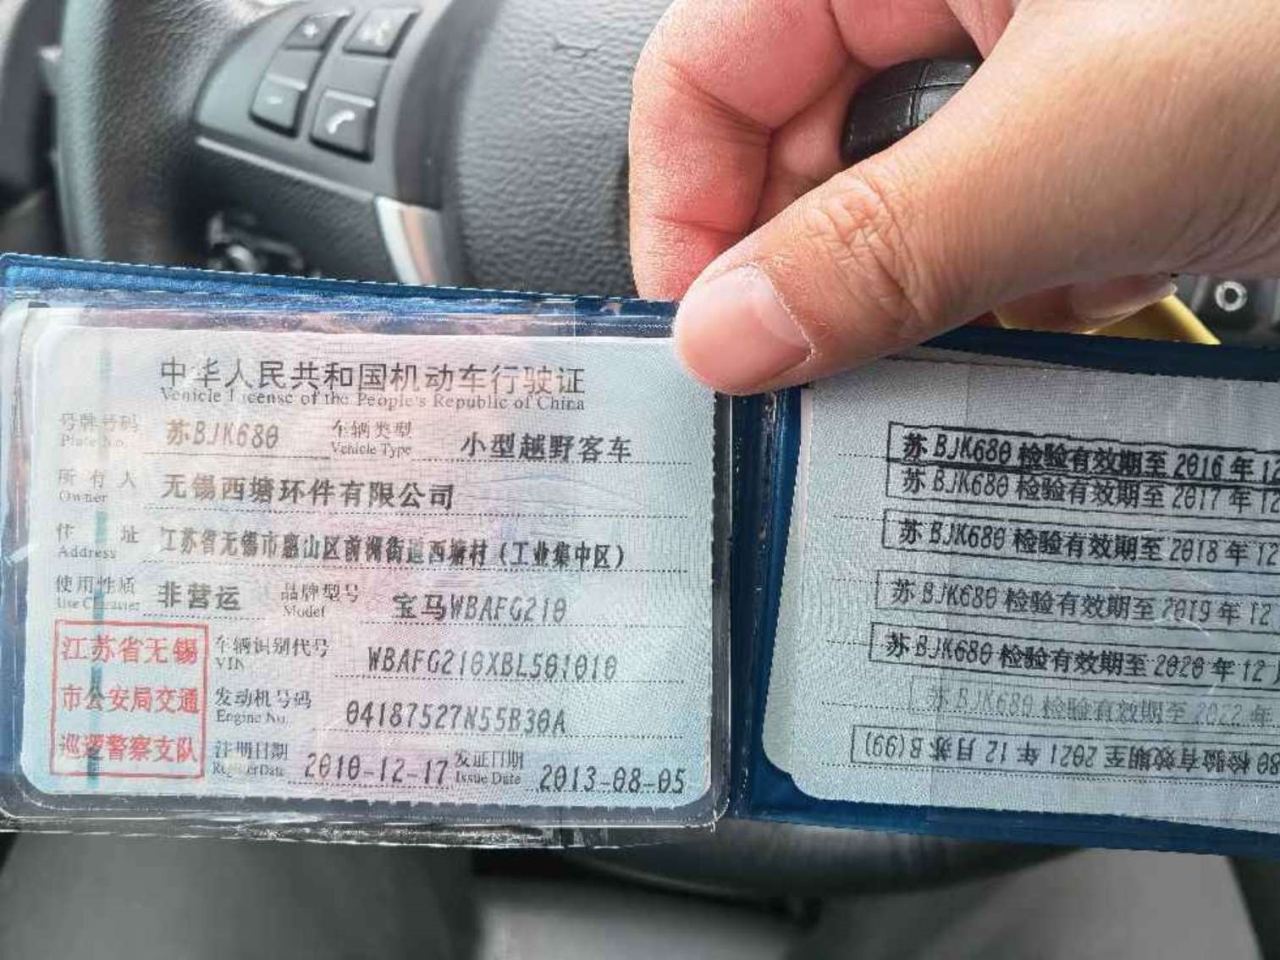 中华人民共和国机动车行驶证
Vehicle License of the People's Republic of China
号牌号码 苏BJK680 车辆类型 小型越野客车
Plate No. Vehicle Type
所有人 无锡西塘环件有限公司
Owner
住址 江苏省无锡市惠山区前洲街道西塘村（工业集中区）
Address
使用性质 非营运 品牌型号 宝马WBAFG210
Use Character Model
江苏省无锡
市公安局交通
巡逻警察支队
车辆识别代号 WBAFG210XBL501010
VIN
发动机号码 04187527N55B30A
Engine No.
注册日期 2010-12-17 发证日期 2013-08-05
Register Date Issue Date
苏BJK680 检验有效期至 2016年12
苏BJK680 检验有效期至 2017年12
苏BJK680 检验有效期至 2018年12
苏BJK680 检验有效期至 2019年12
苏BJK680 检验有效期至 2020年12
苏BJK680 检验有效期至 2022年
80 检验有效期至 2021年12月苏B(99)